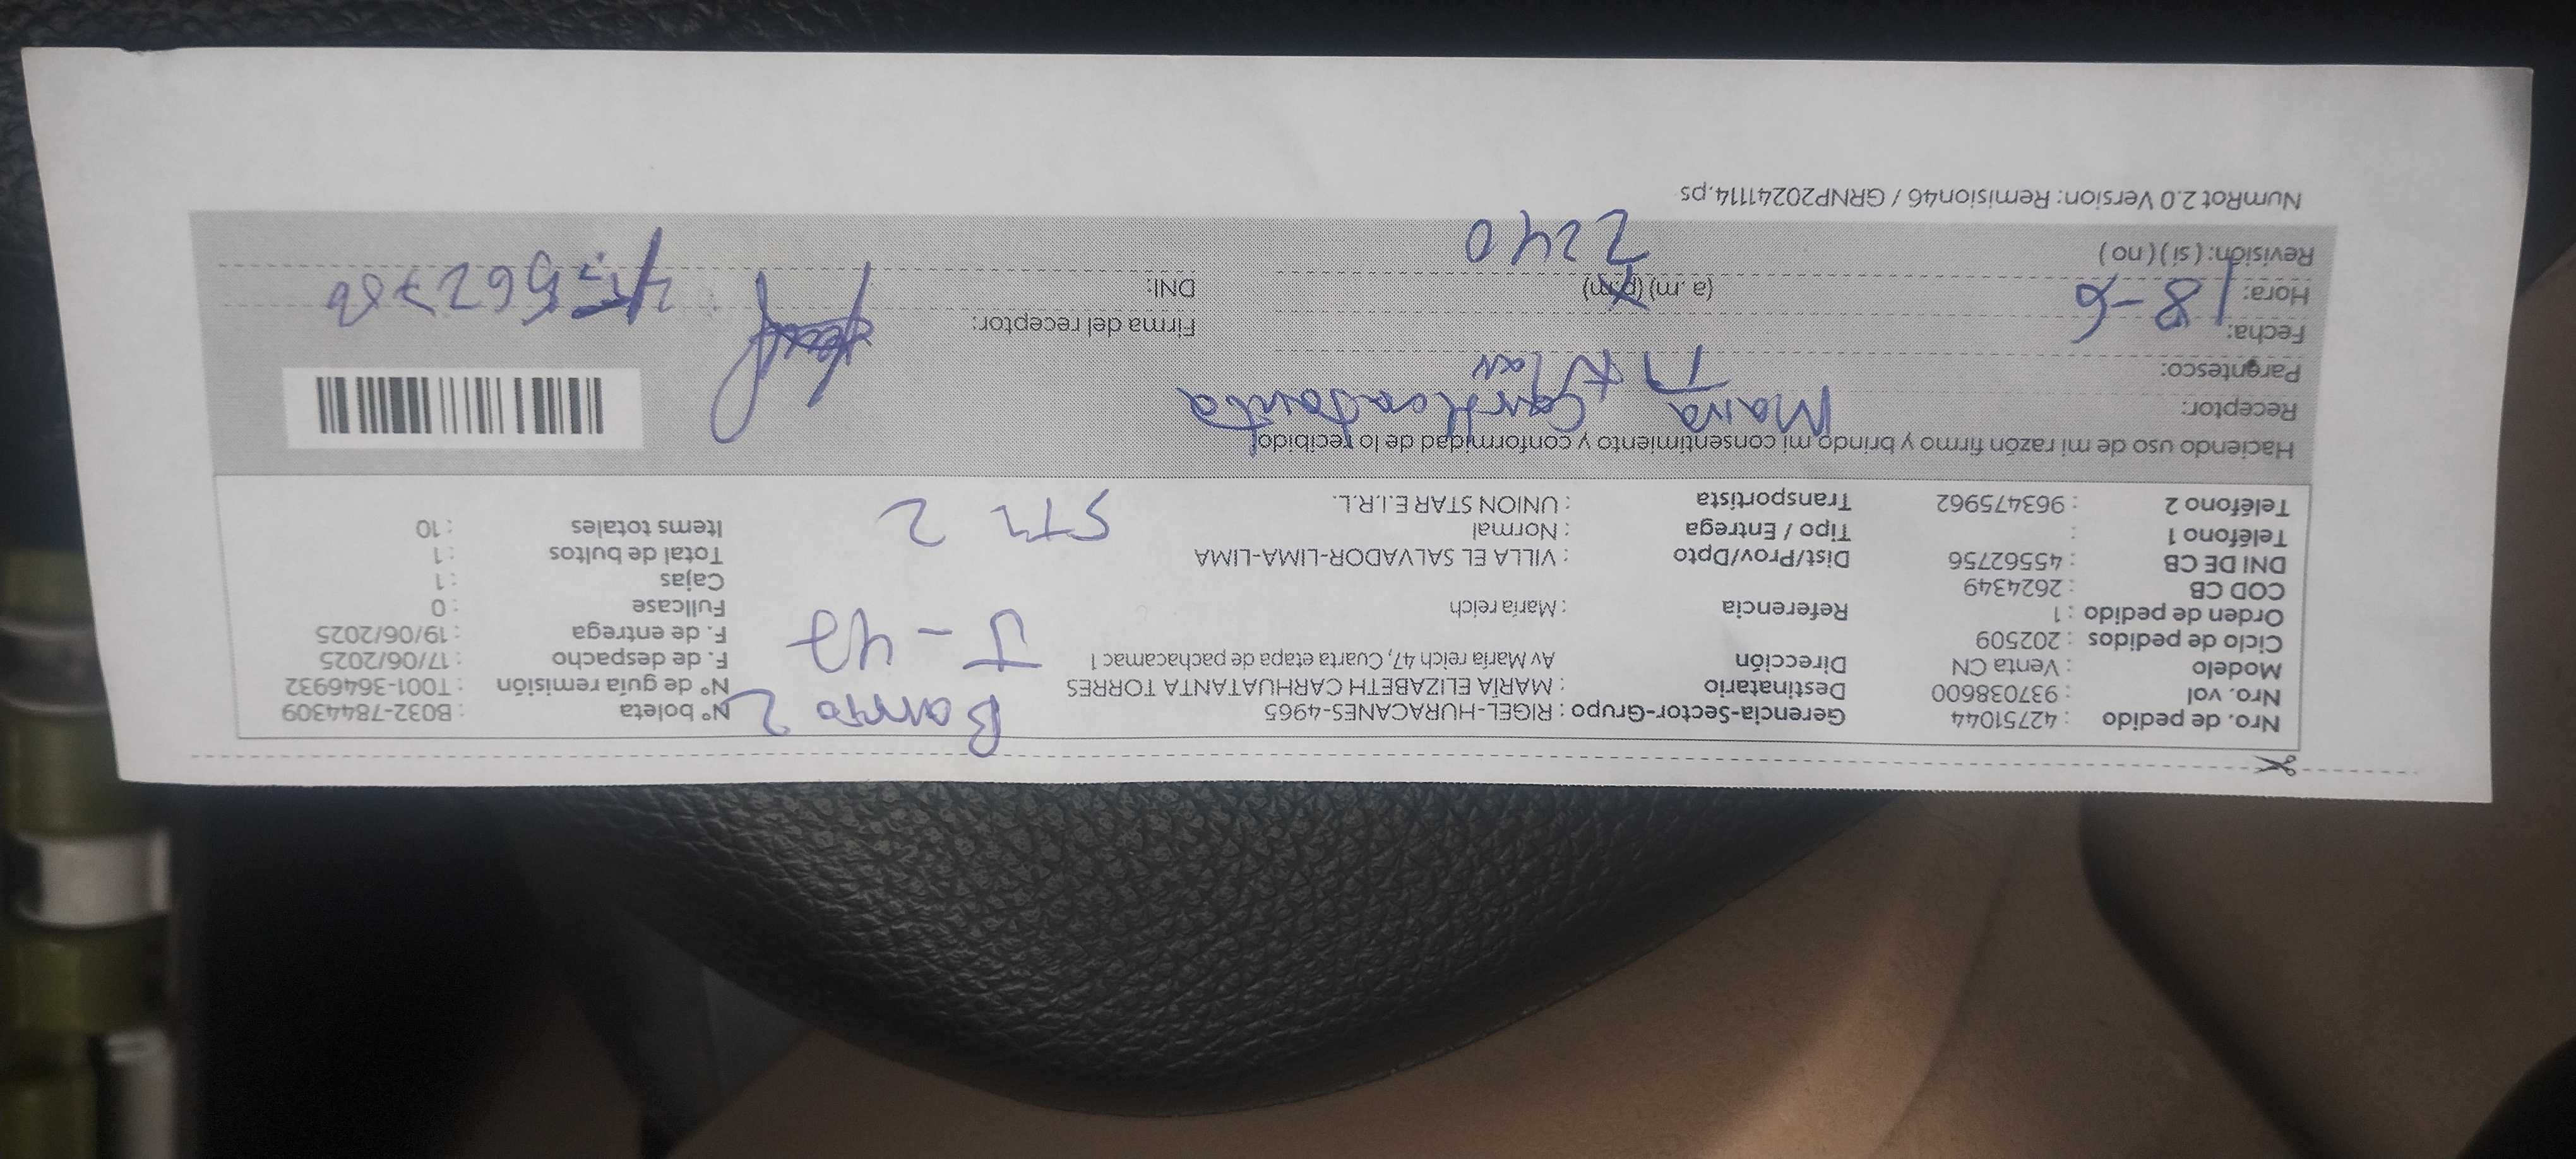 Nro. de pedido : 42751044
Nro. vol : 937038600
Modelo : Venta CN
Ciclo de pedidos : 202509
Orden de pedido : 1
COD CB : 2624349
DNI DE CB : 45562756
Teléfono 1 :
Teléfono 2 : 963475962
Gerencia-Sector-Grupo : RIGEL-HURACANES-4965
Destinatario : MARÍA ELIZABETH CARHUATANTA TORRES
Dirección Av María reich 47, Cuarta etapa de pachacamac 1
Referencia : María reich
Dist/Prov/Dpto : VILLA EL SALVADOR-LIMA-LIMA
Tipo / Entrega : Normal
Transportista : UNION STAR E.I.R.L.
Barrio 2
J-47
2
Nº boleta : B032-7844309
Nº de guía remisión : T001-3646932
F. de despacho : 17/06/2025
F. de entrega : 19/06/2025
Fullcase : 0
Cajas : 1
Total de bultos : 1
Items totales : 10
Haciendo uso de mi razón firmo y brindo mi consentimiento y conformidad de lo recibido
Receptor: Maria
Parentesco:
Fecha: 18-6
Hora: (a. m) (p.m) 2240
Revisión: ( si ) ( no )
Firma del receptor:
DNI:
NumRot 2.0 Version: Remision46 / GRNP20241114.ps